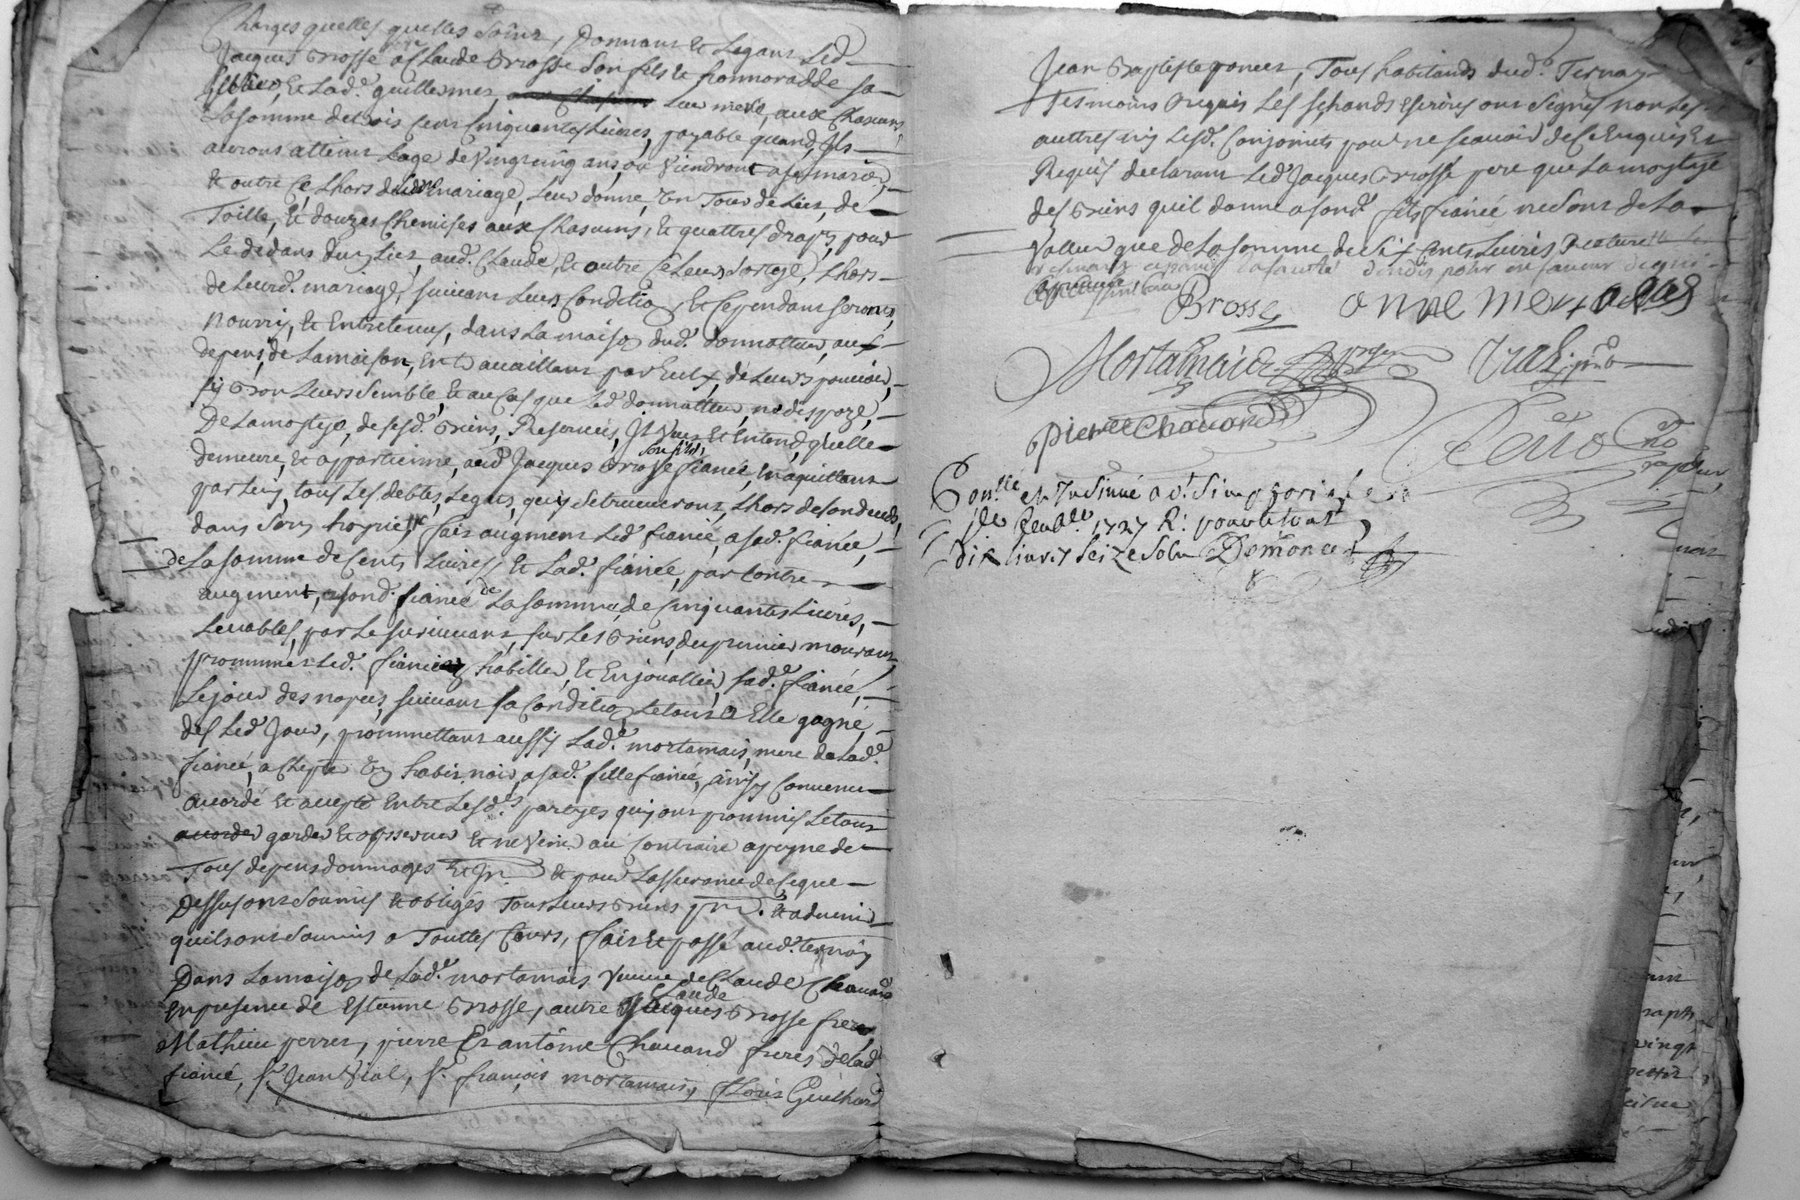 Charges quelles quelles soins, Donnans et Legans Led.
Jacques Brosse a Claude Brosse son fils et honnorable sa
fille, et Lad. guillermet, Leur mere, aux Chascuns,
La somme de trois Cens Cinquantes Livres, payable quand Ils
auront atteins Lage de Vingt cinq ans, ou Viendront a se marier,
et outre Ce, Lhors de Leur mariage, Leur donne, Un Tour de Lict, de
Toille, et douzes Chemises aux Chascuns, et quattres draps, pour
Le dedans du Lict, aud. Claude, et outre Ce Leurs Lhors
de Leurd. mariage, suivant Leurs Condition, Et Cependans seronts,
nourris, et Entretenus, dans La maison dud. donnatteur, aux
depens de La maison, En travaillans par Eulx, de Leurs pouvoir,
sy bon Leurs semble, et au Cas que Led. donnatteur, ne dispoze,
De La moytye, de sesd. biens, Reservés, Il Veut et Entend, qu'elle
demeure, et appartienne, aud. Jacques Brosse son fils, fiancé, En aquittans
par Luy, tous Les debtes, Legats, quy se treuveronts, Lhors de son deceds,
dans son hoyrie, fait augment Led. fiancé, a sad. fiancée,
de La somme de Cents Livres, et Lad. fiancée, par Contre
augment, a sond. fiancé de La somme, de Cinquantes Livres,
Levables, par Le survivant, sur Les biens, du premier mourant,
prommet Led. fiancé habiller, et Enjoualler, sad. fiancée,
Le jour des nopces, suivant sa Condition Le tout a Elle gagné,
des Led. Jour, prommettant aussy Lad. mortamais, mere de Lad.
fiancée, achepter Un habit noir, a sad. fille fiancée, ainsy Convenu
accordé et accepté Entre Lesd. partyes quy ont prommis Le tout
accorder garder et observer et ne Venir au Contraire a peyne de
Tous depens dommages Et et pour Lassurance de Ce que
Dessus ont soumis et obliges Tous Leurs biens pnt. et advenir
quils ont soumis a Touttes Cours, fait et passé aud. ternay
Dans La maison de Lad. mortamais Veuve de Claude Chavand
En presence de Estienne Brosse, autre Claude Brosse frere
Mathieu perret, pierre Et antoine Chavand freres de Lad.
fiancée, Sr. Jean Vial, Sr. françois mortamais, Floris Guilhard
Jean Baptiste poncet, Tous habitands dud. Ternay
Tesmoins Requis Les sachands Escrire ont signés non Les
auttres ny Lesd. Conjoincts pour ne scavoir de Ce Enquis Et
Requis declarant Led. Jacques Brosse pere que La moytye
des biens quil donne a sond. fils fiancé ne sont de La
Valleur que de La somme de six Cents Livres
Brosse anne mortames
Mortamais Vial
pierre Chavand
Con.lé et Insinué a St. Simphorien
1727 R. pour le tout
dix livres seize sols Demoncel